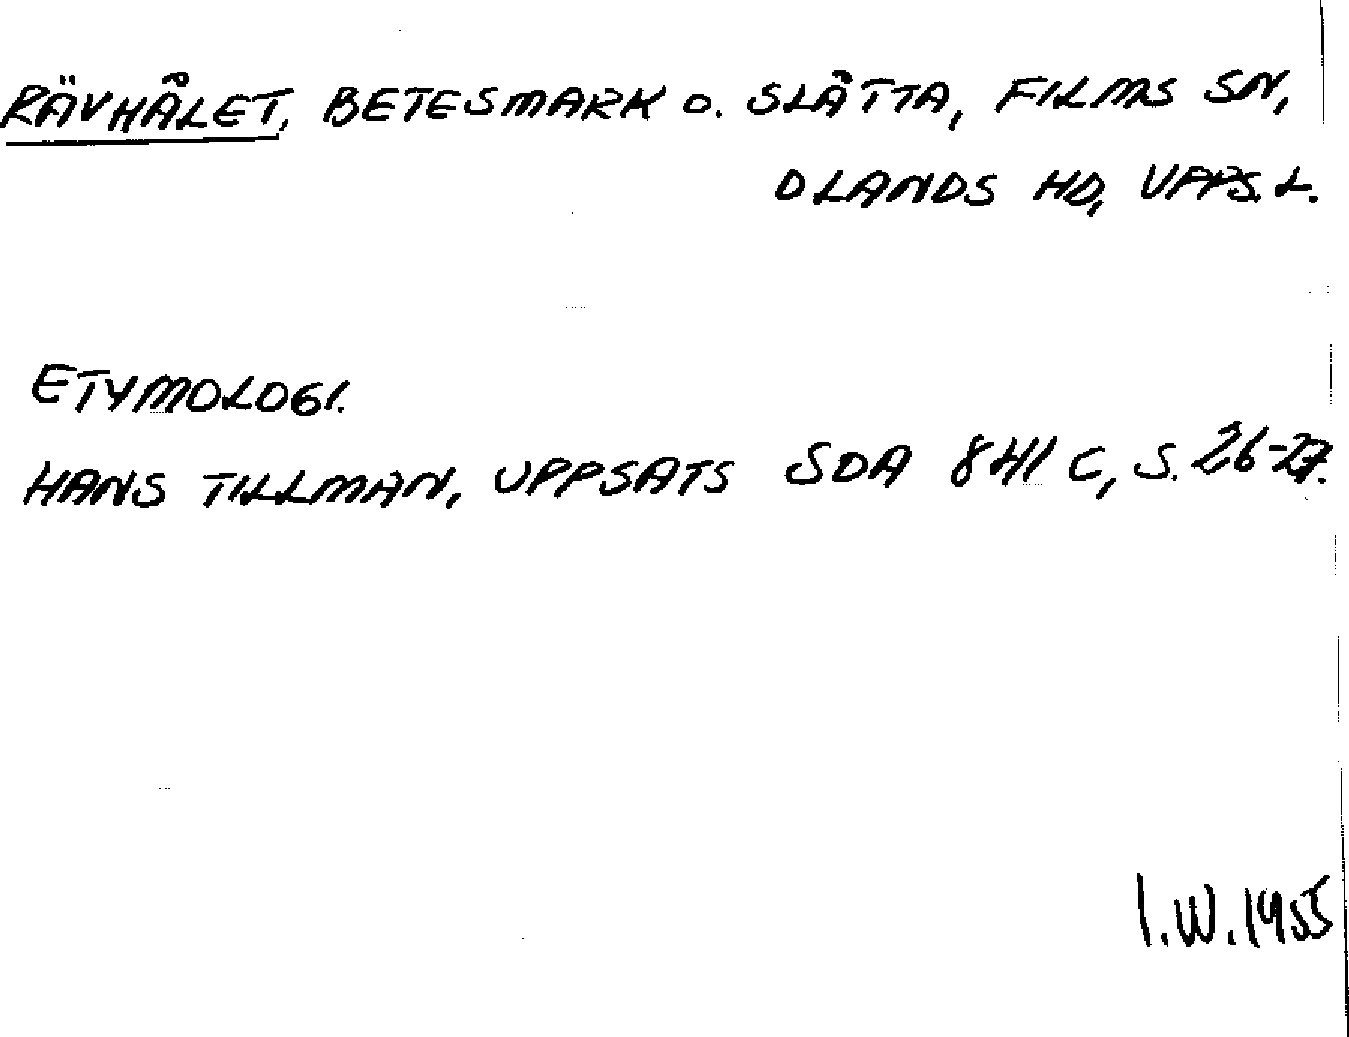 RÄVHÅLET, BETESMARK O. SLÅTTA, FILMS SN,
OLANDS HD, UPPS. L.
ETYMOLOGI.
HANS TILLMAN, UPPSATS SOA 841 C, S. 26-27.
I.W. 1955